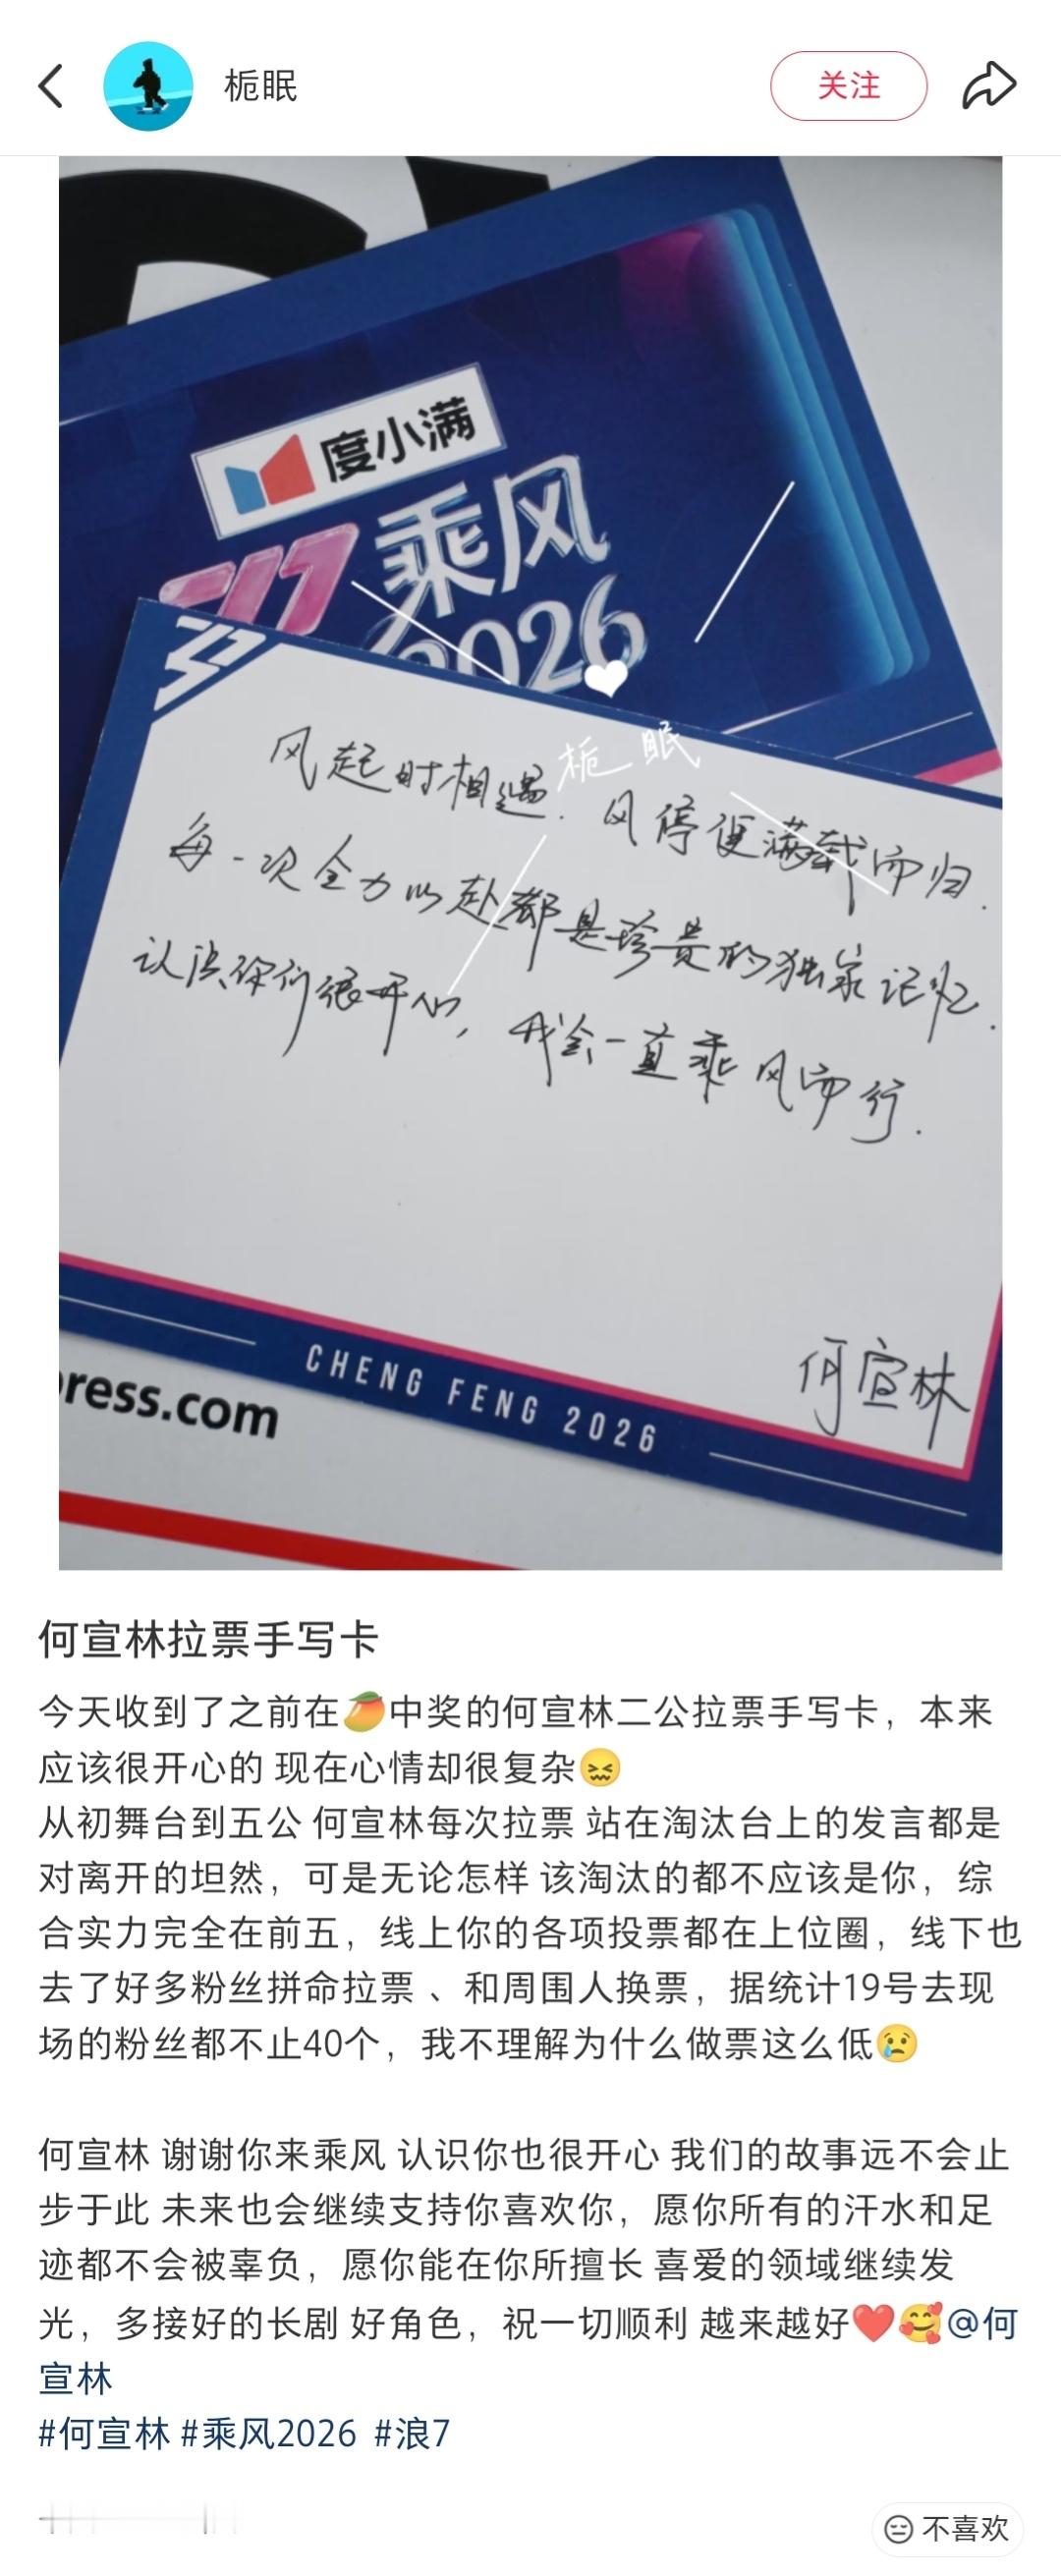 栀眠
关注
度小满
乘风
2026
栀 眠
风起时相遇. 风停便满载而归.
每一次全力以赴都是珍贵的独家记忆.
认识你们很开心, 我会一直乘风而行.
何宣林
CHENG FENG 2026
ress.com
何宣林拉票手写卡
今天收到了之前在🥭中奖的何宣林二公拉票手写卡，本来
应该很开心的 现在心情却很复杂😖
从初舞台到五公 何宣林每次拉票 站在淘汰台上的发言都是
对离开的坦然，可是无论怎样 该淘汰的都不应该是你，综
合实力完全在前五，线上你的各项投票都在上位圈，线下也
去了好多粉丝拼命拉票 、和周围人换票，据统计19号去现
场的粉丝都不止40个，我不理解为什么做票这么低😢
何宣林 谢谢你来乘风 认识你也很开心 我们的故事远不会止
步于此 未来也会继续支持你喜欢你，愿你所有的汗水和足
迹都不会被辜负，愿你能在你所擅长 喜爱的领域继续发
光，多接好的长剧 好角色，祝一切顺利 越来越好❤️🥰@何
宣林
#何宣林 #乘风2026 #浪7
不喜欢